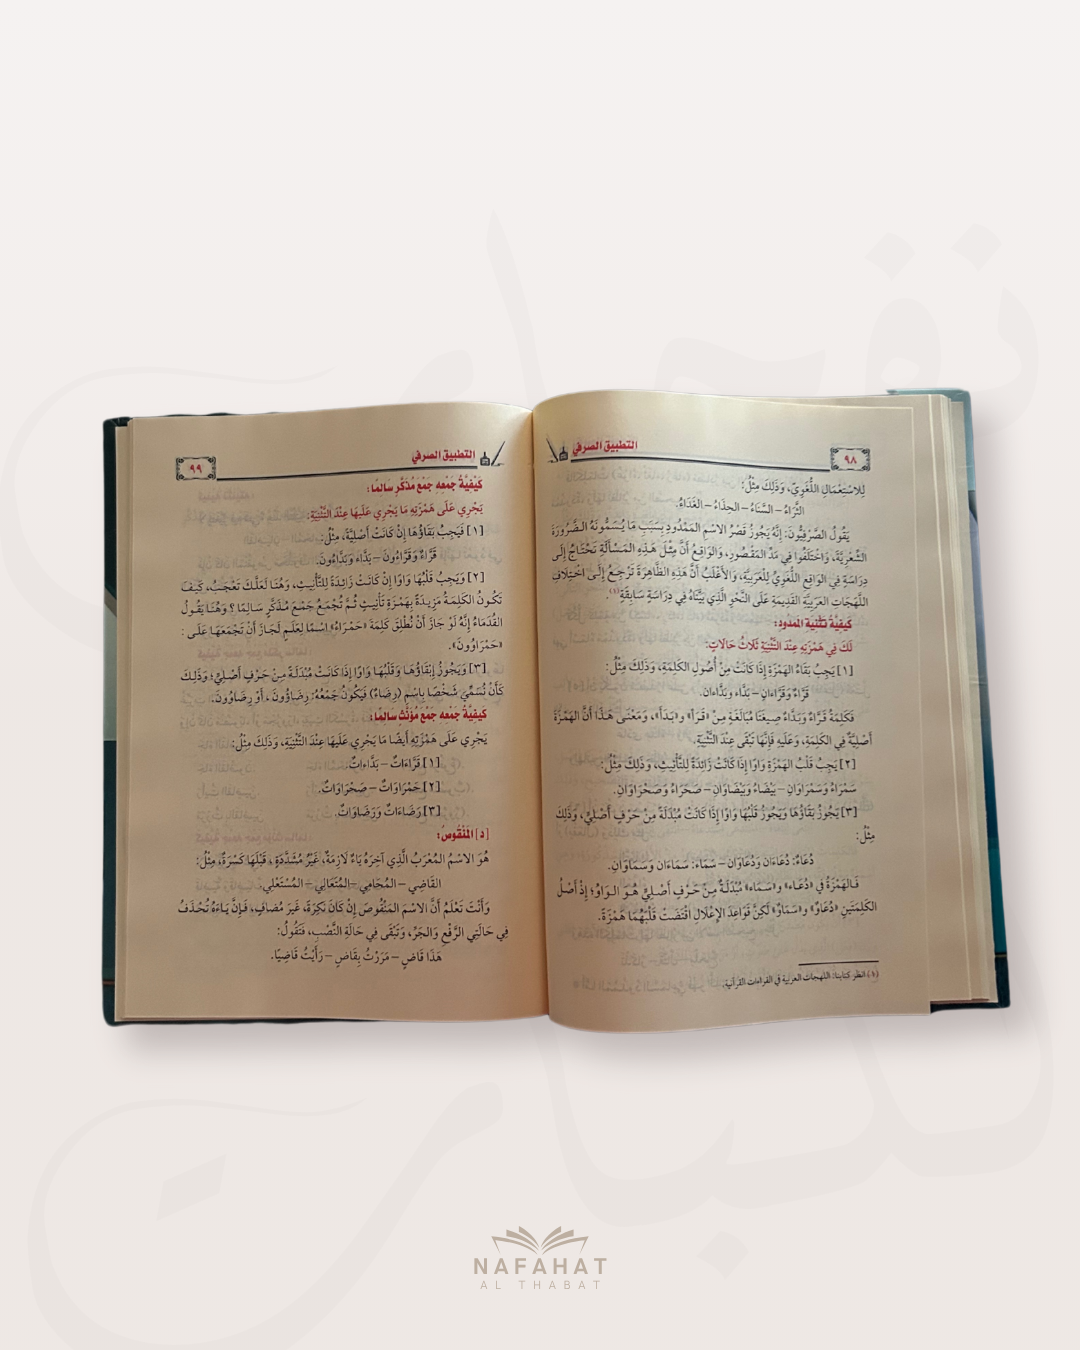 ٩٨
التطبيق الصرفي
لِلاسْتِعْمَالِ اللُّغَوِيِّ، وَذَلِكَ مِثْلُ:
الثَّرَاءُ – السَّنَاءُ – الحِذَاءُ – الغَدَاءُ.
يَقُولُ الصَّرْفِيُّونَ: إِنَّهُ يَجُوزُ قَصْرُ الاسْمِ المَمْدُودِ بِسَبَبِ مَا يُسَمُّونَهُ الضَّرُورَةَ
الشِّعْرِيَّةَ، وَاخْتَلَفُوا فِي مَدِّ المَقْصُورِ، وَالوَاقِعُ أَنَّ مِثْلَ هَذِهِ المَسْأَلَةِ تَحْتَاجُ إِلَى
دِرَاسَةٍ فِي الوَاقِعِ اللُّغَوِيِّ لِلْعَرَبِيَّةِ، وَالأَغْلَبُ أَنَّ هَذِهِ الظَّاهِرَةَ تَرْجِعُ إِلَى اخْتِلَافِ
اللَّهَجَاتِ العَرَبِيَّةِ القَدِيمَةِ عَلَى النَّحْوِ الَّذِي بَيَّنَّاهُ فِي دِرَاسَةٍ سَابِقَةٍ(١).
كَيْفِيَّةُ تَثْنِيَةِ المَمْدُودِ:
لَكَ فِي هَمْزَتِهِ عِنْدَ التَّثْنِيَةِ ثَلَاثُ حَالَاتٍ:
[١] يَجِبُ بَقَاءُ الهَمْزَةِ إِذَا كَانَتْ مِنْ أُصُولِ الكَلِمَةِ، وَذَلِكَ مِثْلُ:
قَرَّاءُ وَقَرَّاءَانِ – بَدَّاء وبَدَّاءَان.
فَكَلِمَةُ قَرَّاءٌ وَبَدَّاءٌ صِيغَتَا مُبَالَغَةٍ مِنْ «قَرَأَ» و«بَدَأَ»، وَمَعْنَى هَذَا أَنَّ الهَمْزَةَ
أَصْلِيَّةٌ فِي الكَلِمَةِ، وَعَلَيْهِ فَإِنَّهَا تَبْقَى عِنْدَ التَّثْنِيَةِ.
[٢] يَجِبُ قَلْبُ الهَمْزَةِ وَاوًا إِذَا كَانَتْ زَائِدَةً لِلتَّأْنِيثِ، وَذَلِكَ مِثْلُ:
سَمْرَاءُ وَسَمْرَاوَانِ – بَيْضَاءُ وَبَيْضَاوَانِ – صَحْرَاءُ وَصَحْرَاوَانِ.
[٣] يَجُوزُ بَقَاؤُهَا وَيَجُوزُ قَلْبُهَا وَاوًا إِذَا كَانَتْ مُبْدَلَةً مِنْ حَرْفٍ أَصْلِيٍّ، وَذَلِكَ
مِثْلُ:
دُعَاءُ: دُعَاءَان وَدُعَاوَان – سَمَاء: سَمَاءَان وَسَمَاوَانِ.
فَالهَمْزَةُ فِي «دُعَاء» و«سَمَاء» مُبْدَلَةٌ مِنْ حَرْفٍ أَصْلِيٍّ هُوَ الوَاوُ؛ إِذْ أَصْلُ
الكَلِمَتَيْنِ «دُعَاوٌ» و«سَمَاوٌ» لَكِنَّ قَوَاعِدَ الإِعْلَالِ اقْتَضَتْ قَلْبَهُمَا هَمْزَةً.
(١) انظر كتابنا: اللهجات العربية في القراءات القرآنية.
التطبيق الصرفي
٩٩
كَيْفِيَّةُ جَمْعِهِ جَمْعَ مُذَكَّرٍ سَالِمًا:
يَجْرِي عَلَى هَمْزَتِهِ مَا يَجْرِي عَلَيْهَا عِنْدَ التَّثْنِيَةِ:
[١] فَيَجِبُ بَقَاؤُهَا إِنْ كَانَتْ أَصْلِيَّةً، مِثْلُ:
قَرَّاءُ وَقَرَّاءُونَ – بَدَّاء وَبَدَّاءُون.
[٢] وَيَجِبُ قَلْبُهَا وَاوًا إِنْ كَانَتْ زَائِدَةً لِلتَّأْنِيثِ، وَهُنَا لَعَلَّكَ تَعْجَبُ، كَيْفَ
تَكُونُ الكَلِمَةُ مَزِيدَةً بِهَمْزَةِ تَأْنِيثٍ ثُمَّ تُجْمَعُ جَمْعَ مُذَكَّرٍ سَالِمًا؟ وَهُنَا يَقُولُ
القُدَمَاءُ إِنَّهُ لَوْ جَازَ أَنْ تُطْلِقَ كَلِمَةَ «حَمْرَاءُ» اسْمًا لِعَلَمٍ لَجَازَ أَنْ تَجْمَعَهَا عَلَى:
«حَمْرَاوُونَ».
[٣] وَيَجُوزُ إِبْقَاؤُهَا وَقَلْبُهَا وَاوًا إِذَا كَانَتْ مُبْدَلَةً مِنْ حَرْفٍ أَصْلِيٍّ؛ وَذَلِكَ
كَأَنْ تُسَمِّيَ شَخْصًا بِاسْمِ (رِضَاء) فَيَكُونُ جَمْعُهُ: رِضَاؤُونَ، أَوْ رِضَاوُونَ.
كَيْفِيَّةُ جَمْعِهِ جَمْعَ مُؤَنَّثٍ سَالِمًا:
يَجْرِي عَلَى هَمْزَتِهِ أَيْضًا مَا يَجْرِي عَلَيْهَا عِنْدَ التَّثْنِيَةِ، وَذَلِكَ مِثْلُ:
[١] قَرَّاءَاتٌ – بَدَّاءَاتٌ.
[٢] حَمْرَاوَاتٌ – صَحْرَاوَاتٌ.
[٣] رَضَاءَاتٌ وَرَضَاوَاتٌ.
[د] المَنْقُوصُ:
هُوَ الاسْمُ المُعْرَبُ الَّذِي آخِرُهُ يَاءٌ لَازِمَةٌ، غَيْرُ مُشَدَّدَةٍ، قَبْلَهَا كَسْرَةٌ، مِثْلُ:
القَاضِي – المُحَامِي – المُتَعَالِي – المُسْتَعْلِي.
وَأَنْتَ تَعْلَمُ أَنَّ الاسْمَ المَنْقُوصَ إِنْ كَانَ نَكِرَةً، غَيْرَ مُضَافٍ، فَإِنَّ يَاءَهُ تُحْذَفُ
فِي حَالَتِي الرَّفْعِ وَالجَرِّ، وَتَبْقَى فِي حَالَةِ النَّصْبِ، فَتَقُولُ:
هَذَا قَاضٍ – مَرَرْتُ بِقَاضٍ – رَأَيْتُ قَاضِيًا.
NAFAHAT
AL THABAT